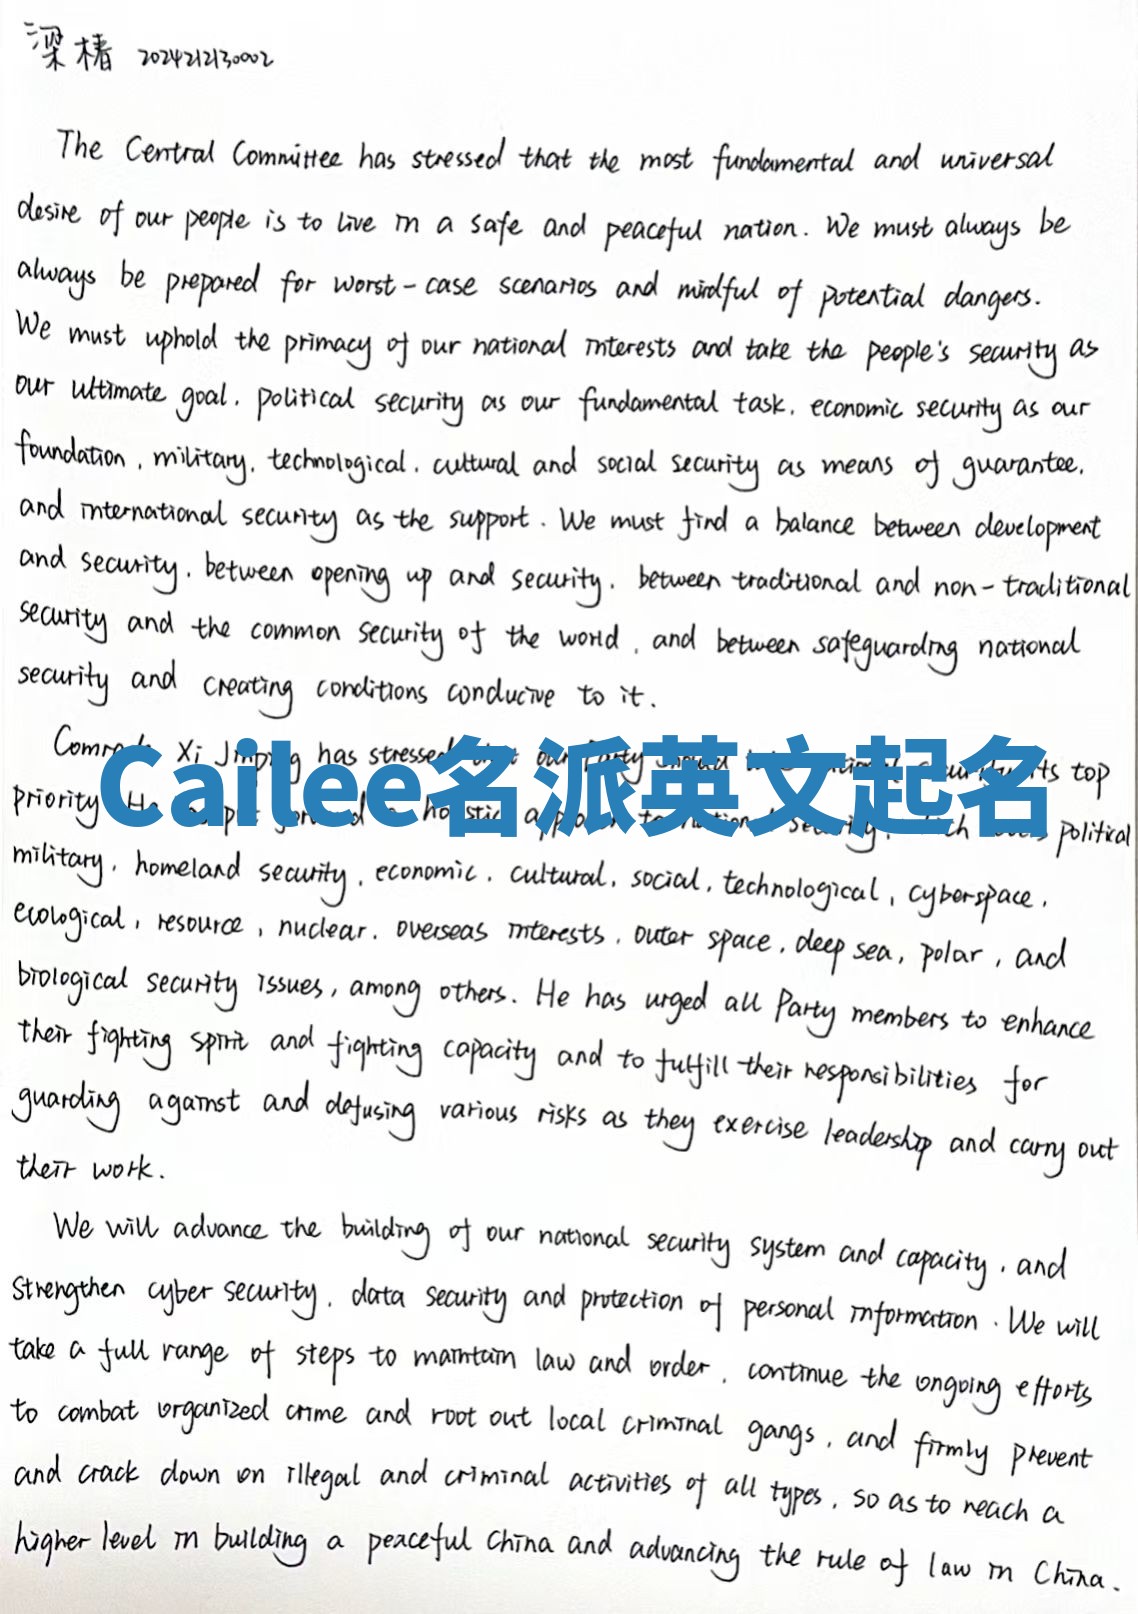 梁椿 2024212130002
The Central Committee has stressed that the most fundamental and universal
desire of our people is to live in a safe and peaceful nation. We must always be
always be prepared for worst-case scenarios and mindful of potential dangers.
We must uphold the primacy of our national interests and take the people's security as
our ultimate goal, political security as our fundamental task, economic security as our
foundation, military, technological, cultural and social security as means of guarantee,
and international security as the support. We must find a balance between development
and security, between opening up and security, between traditional and non-traditional
security and the common security of the world, and between safeguarding national
security and creating conditions conducive to it.
Xi Jinping has stressed our Party top
Cailee名派英文起名
priority. He holistic security, political
military, homeland security, economic, cultural, social, technological, cyberspace,
ecological, resource, nuclear, overseas interests, outer space, deep sea, polar, and
biological security issues, among others. He has urged all Party members to enhance
their fighting spirit and fighting capacity and to fulfill their responsibilities for
guarding against and defusing various risks as they exercise leadership and carry out
their work.
We will advance the building of our national security system and capacity, and
strengthen cyber security, data security and protection of personal information. We will
take a full range of steps to maintain law and order, continue the ongoing efforts
to combat organized crime and root out local criminal gangs, and firmly prevent
and crack down on illegal and criminal activities of all types, so as to reach a
higher level in building a peaceful China and advancing the rule of law in China.